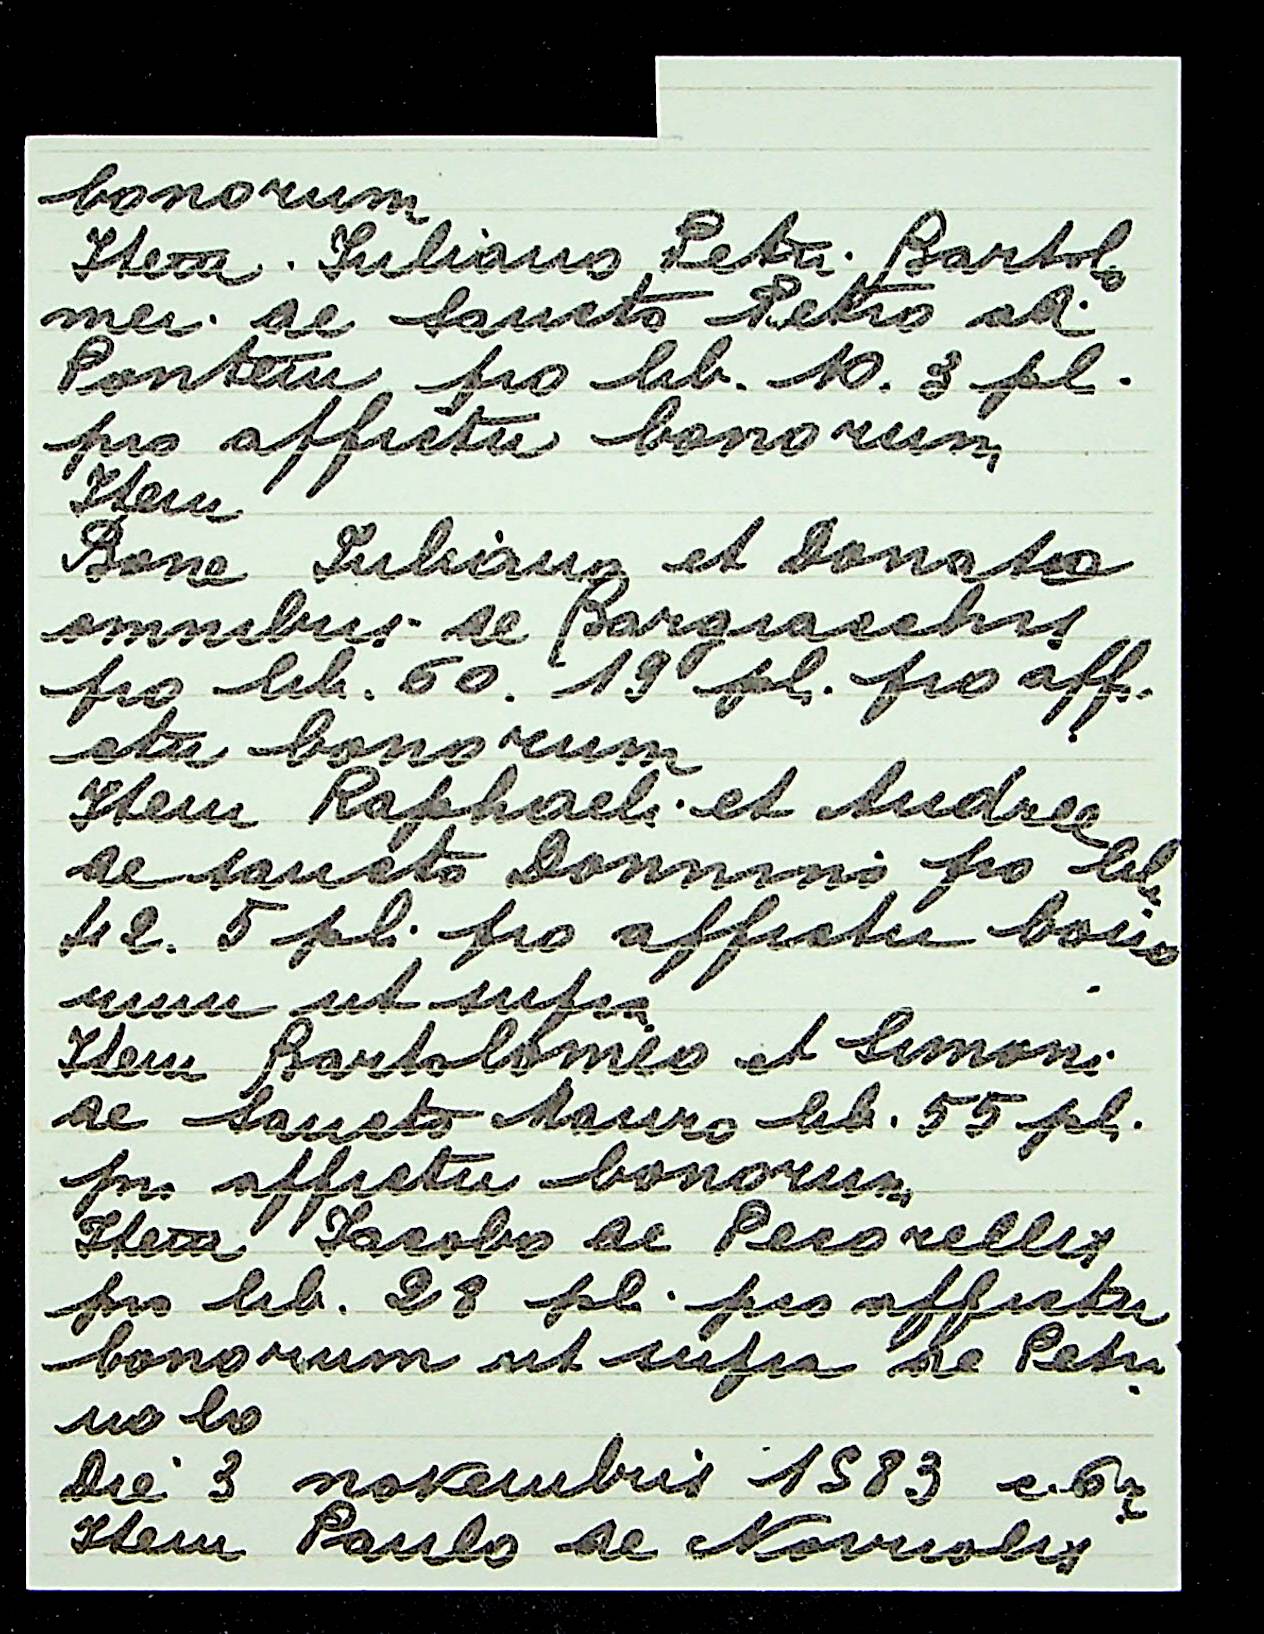 bonorum
Item. Iuliano Petri. Bartolo
mei. de Sancto Petro ad
Pontem pro lib. 10. 3 pl.
pro affictu bonorum
Item
Bone Iuliano et Donato
omnibus de Bargiacchis
pro lib. 60. 19 pl. pro affi
ctu bonorum
Item Raphaeli et Andree
de Sancto Donnino pro lib.
42. 5 pl. pro affictu bono
rum ut supra
Item Bartolomeo et Simoni
de Sancto Mauro lib. 55 pl.
pro affictu bonorum
Item Iacobo de Pecorellis
pro lib. 28 pl. pro affictu
bonorum ut supra de Petri
nolo
Die 3 novembris 1583
Item Paulo de